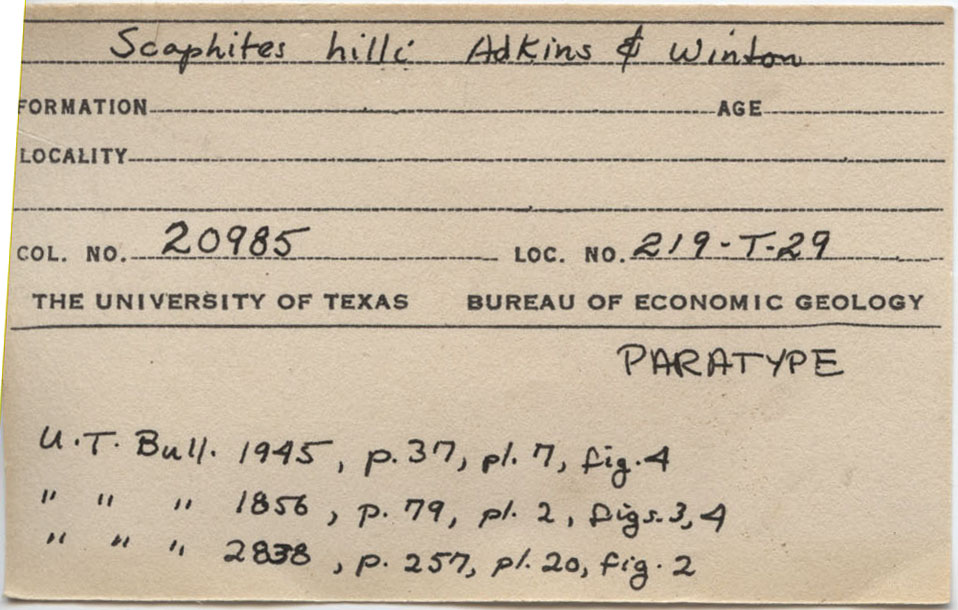 Scaphites hilli Adkins & Winton
FORMATION AGE
LOCALITY
COL. NO. 20985 LOC. NO. 219-T-29
THE UNIVERSITY OF TEXAS BUREAU OF ECONOMIC GEOLOGY
PARATYPE
U.T. Bull. 1945, p. 37, pl. 7, fig. 4
" " " 1856, p. 79, pl. 2, figs. 3, 4
" " " 2838, p. 257, pl. 20, fig. 2